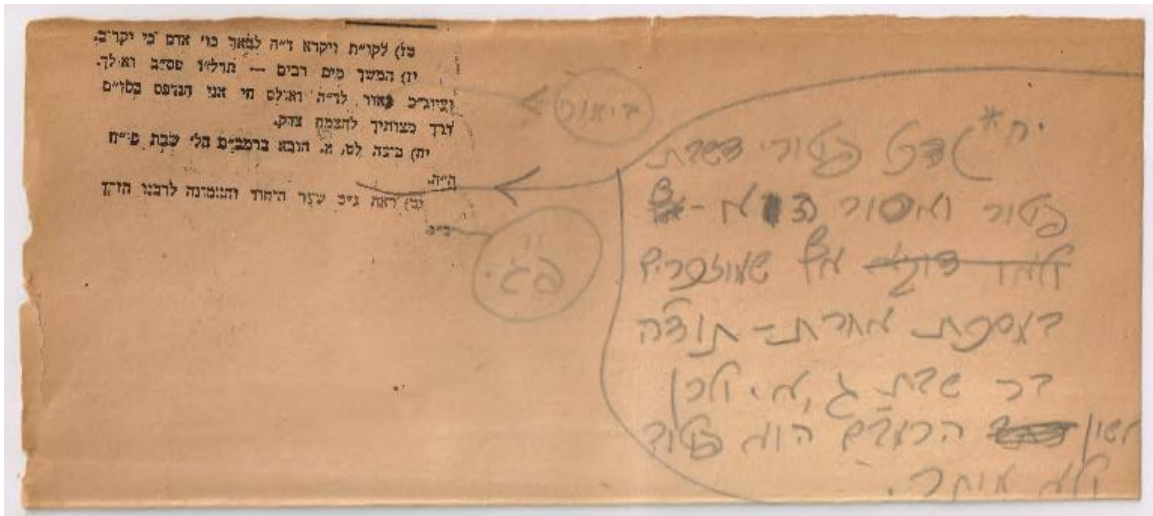 טז) לקו״ת ויקרא ד״ה לבאר כו׳ אדם כי יקריב.
יז) המשך מים רבים — תרל״ו פס״ב ואילך.
ועיוג״כ באור לד״ה ואולם חי אני הנדפס בסו״ס
דרך מצותיך להצמח צדק.
יח) ביצה לט, א. הובא ברמב״ם הל׳ שבת פי״ח
ה״ה.
ראה ג״כ שער היחוד והאמונה לרבנו הזקן
ביאור
פ״ג.
יח*) פטורי דשבת
פטור ואסור
שמוזכרים
תוד״ה
בר שבת ג, א. ולכן
לשון הרמב״ם הוא פטור
ולא מותר.